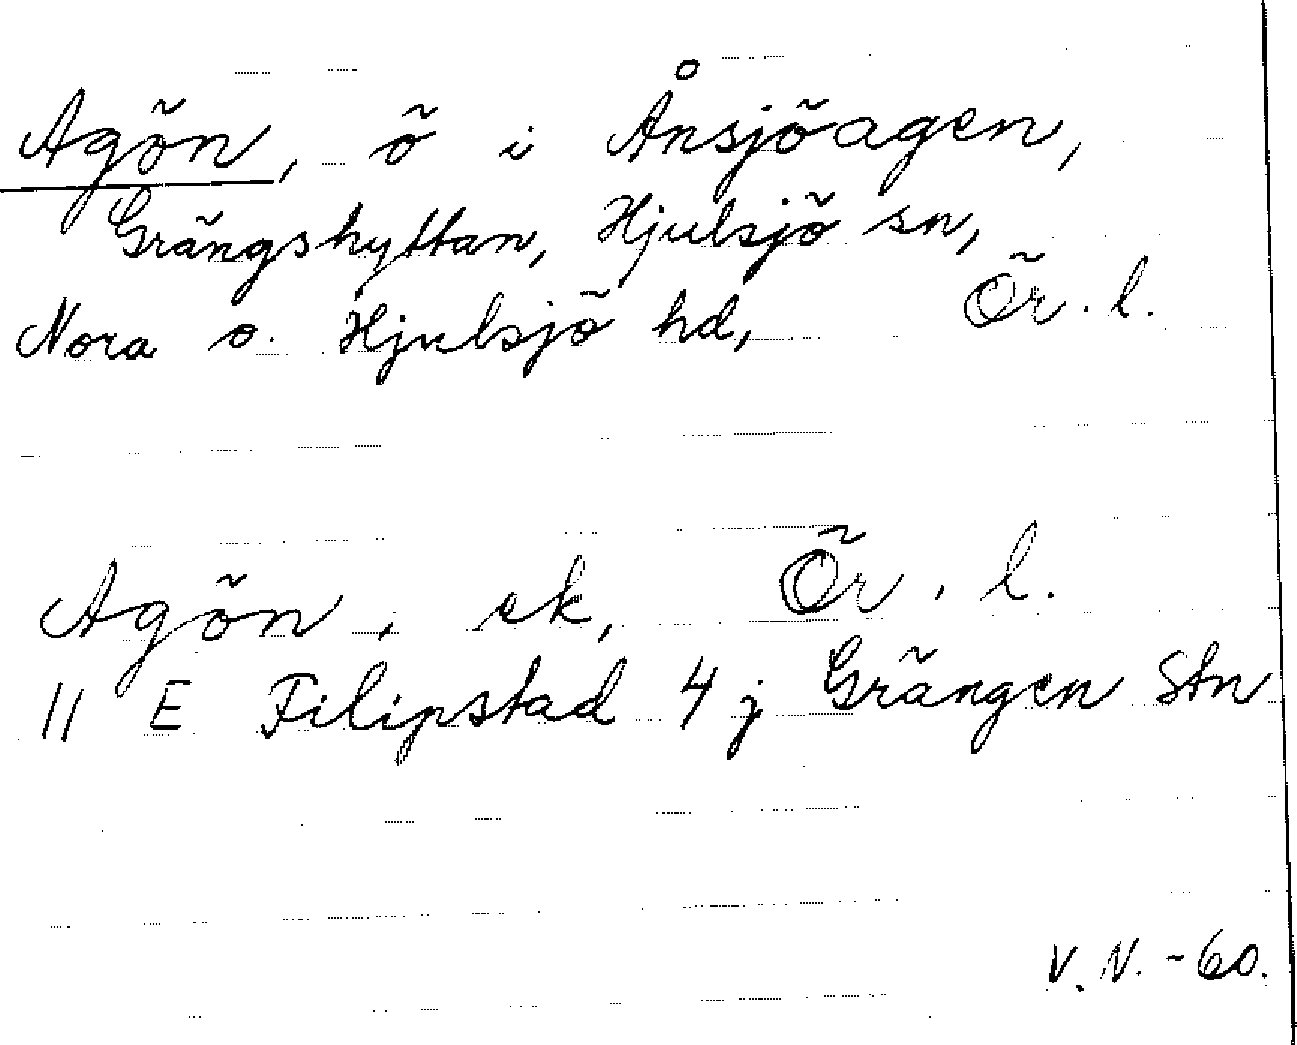 Agön, ö i Ånsjöagen,
Grängshyttan, Hjulsjö sn,
Nora o. Hjulsjö hd, Ör. l.
Agön, ek, Ör. l.
11 E Filipstad 4 j Grängen Stn
V. N. -60.